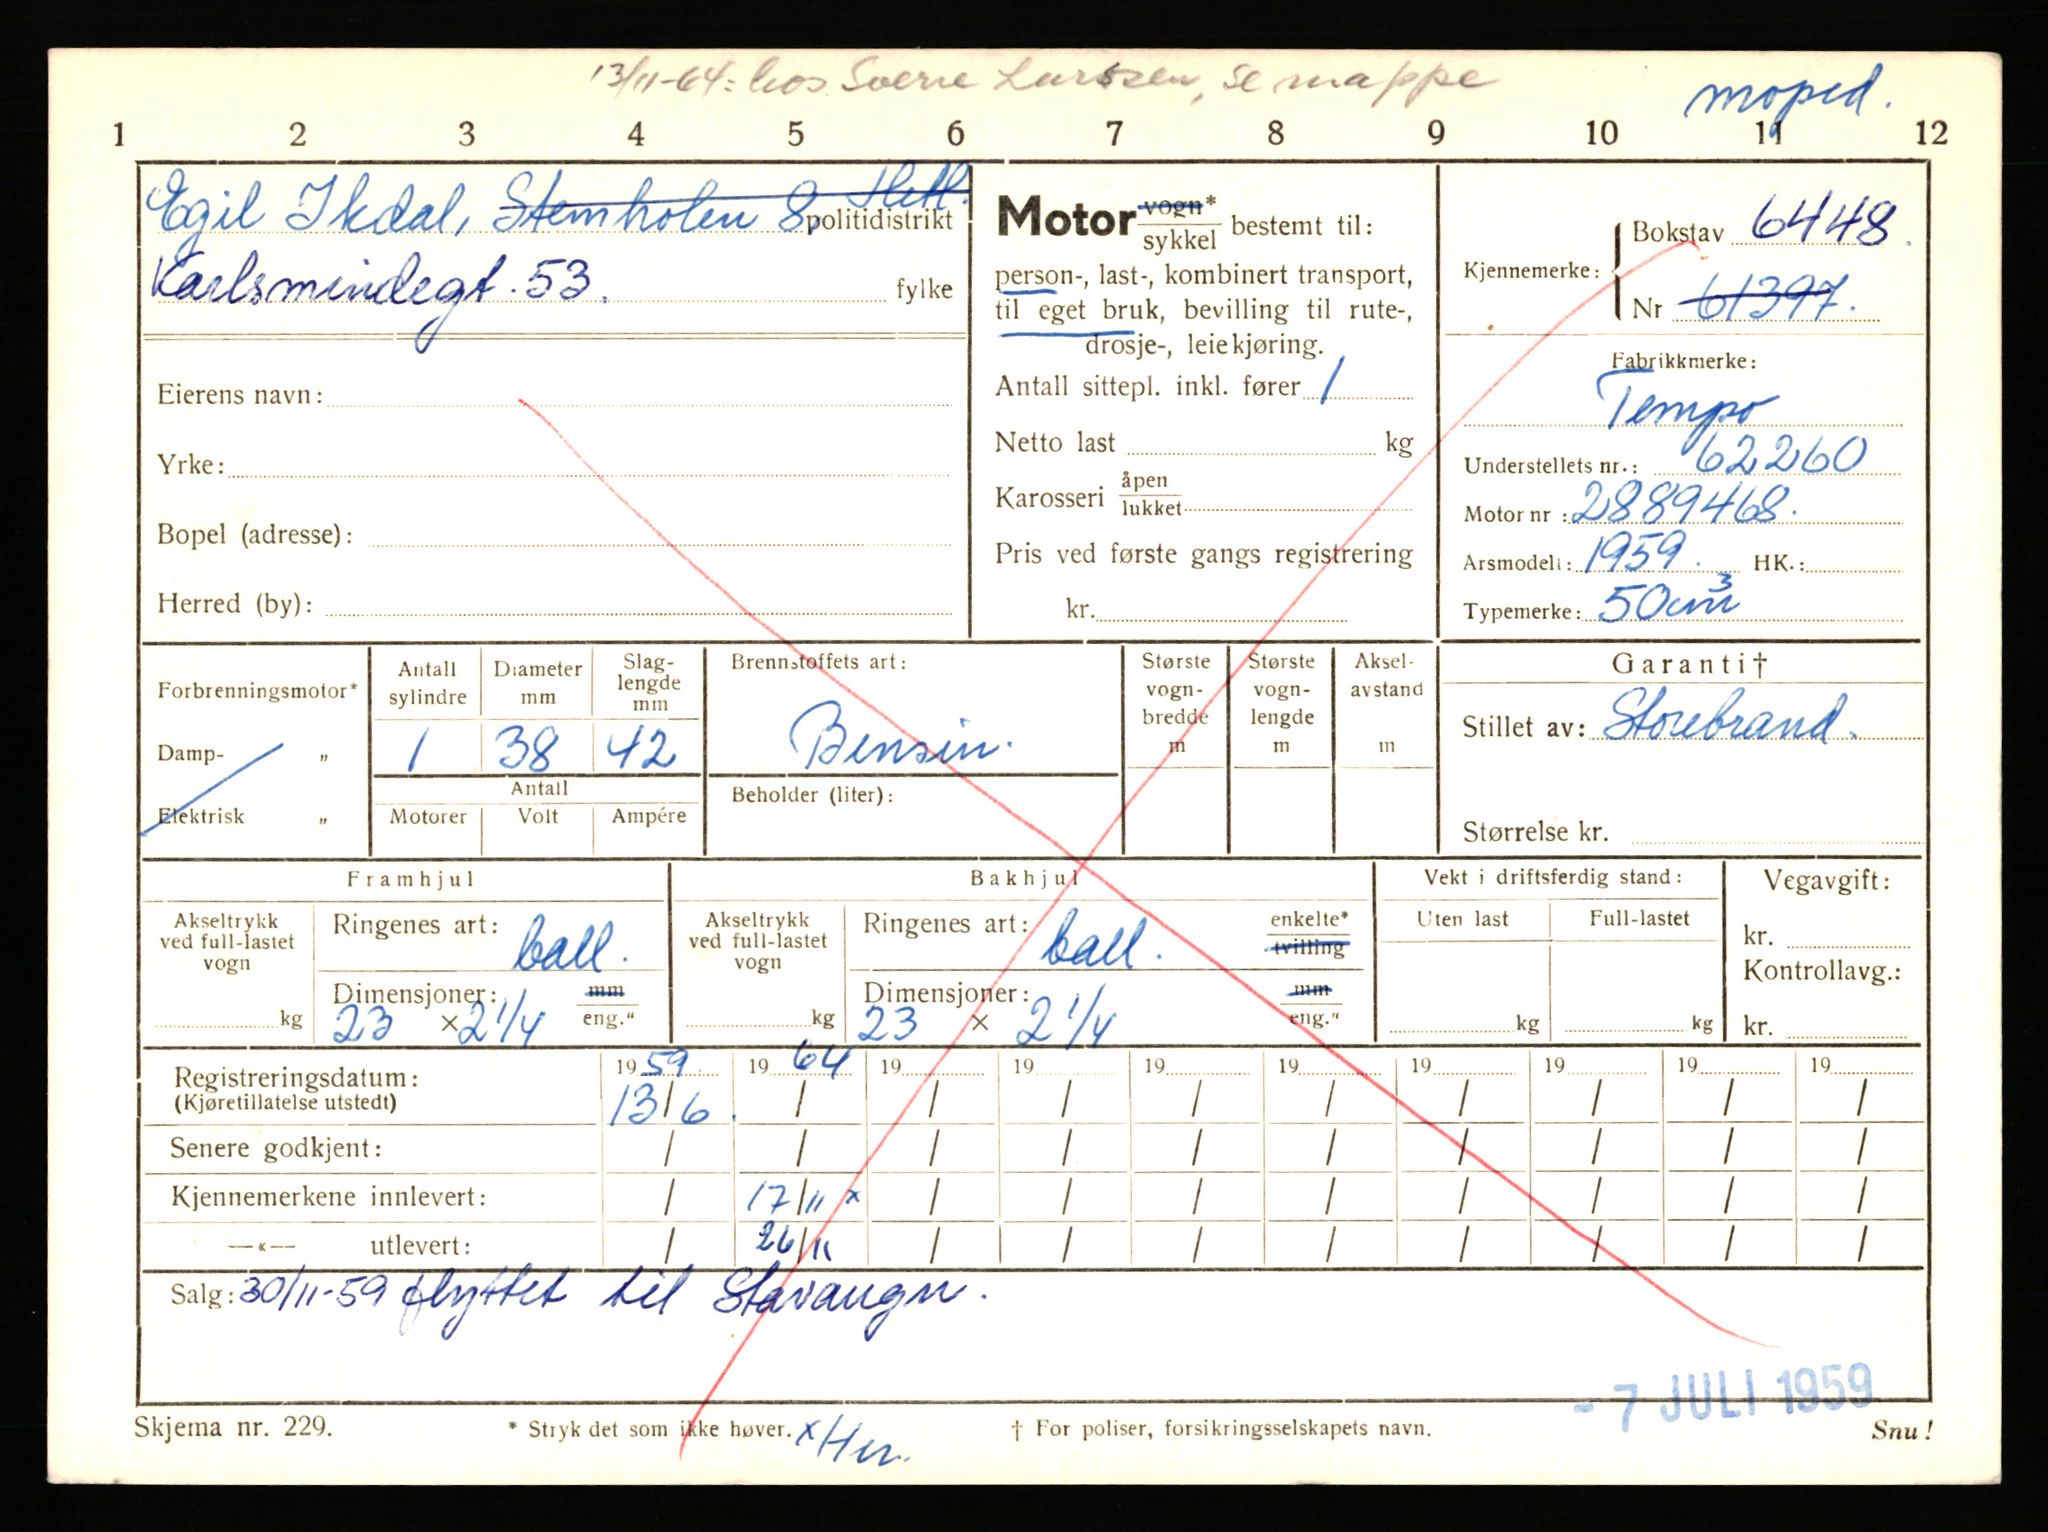 13/11-64: hos Sverre Larssen, se mappe
moped.
1 2 3 4 5 6 7 8 9 10 11 12
Egil Ikdal, Stemholen 8, Hetl. politidistrikt
Karlsmindegt. 53. fylke
Eierens navn:
Yrke:
Bopel (adresse):
Herred (by):
Motor vogn* / sykkel bestemt til:
person-, last-, kombinert transport,
til eget bruk, bevilling til rute-,
drosje-, leiekjøring.
Antall sittepl. inkl. fører 1
Netto last kg
Karosseri åpen / lukket
Pris ved første gangs registrering
kr.
Kjennemerke: Bokstav 6448.
Nr 61397.
Fabrikkmerke:
Tempo
Understellets nr.: 62260
Motor nr: 2889468.
Arsmodell: 1959. HK.:
Typemerke: 50cm³
Forbrenningsmotor*
Damp- "
Elektrisk "
Antall sylindre 1
Diameter mm 38
Slaglengde mm 42
Antall
Motorer Volt Ampére
Brennstoffets art:
Bensin.
Beholder (liter):
Største vogn-bredde m
Største vogn-lengde m
Aksel-avstand m
Garanti†
Stillet av: Storebrand.
Størrelse kr.
Framhjul
Akseltrykk ved full-lastet vogn kg
Ringenes art: ball.
Dimensjoner: mm / eng."
23 × 2 1/4
Bakhjul
Akseltrykk ved full-lastet vogn kg
Ringenes art: ball. enkelte* / tvilling
Dimensjoner: mm / eng."
23 × 2 1/4
Vekt i driftsferdig stand:
Uten last Full-lastet
kg kg
Vegavgift:
kr.
Kontrollavg.:
kr.
Registreringsdatum: 1959. 1964 19 19 19 19 19 19 19 19
(Kjøretillatelse utstedt) 13/6. / / / / / / / / /
Senere godkjent: / / / / / / / / / /
Kjennemerkene innlevert: / 17/11 x / / / / / / / /
—«— utlevert: / 26/11 / / / / / / / /
Salg: 30/11-59 flyttet til Stavanger.
- 7 JULI 1959
Skjema nr. 229. * Stryk det som ikke høver. † For poliser, forsikringsselskapets navn. Snu!